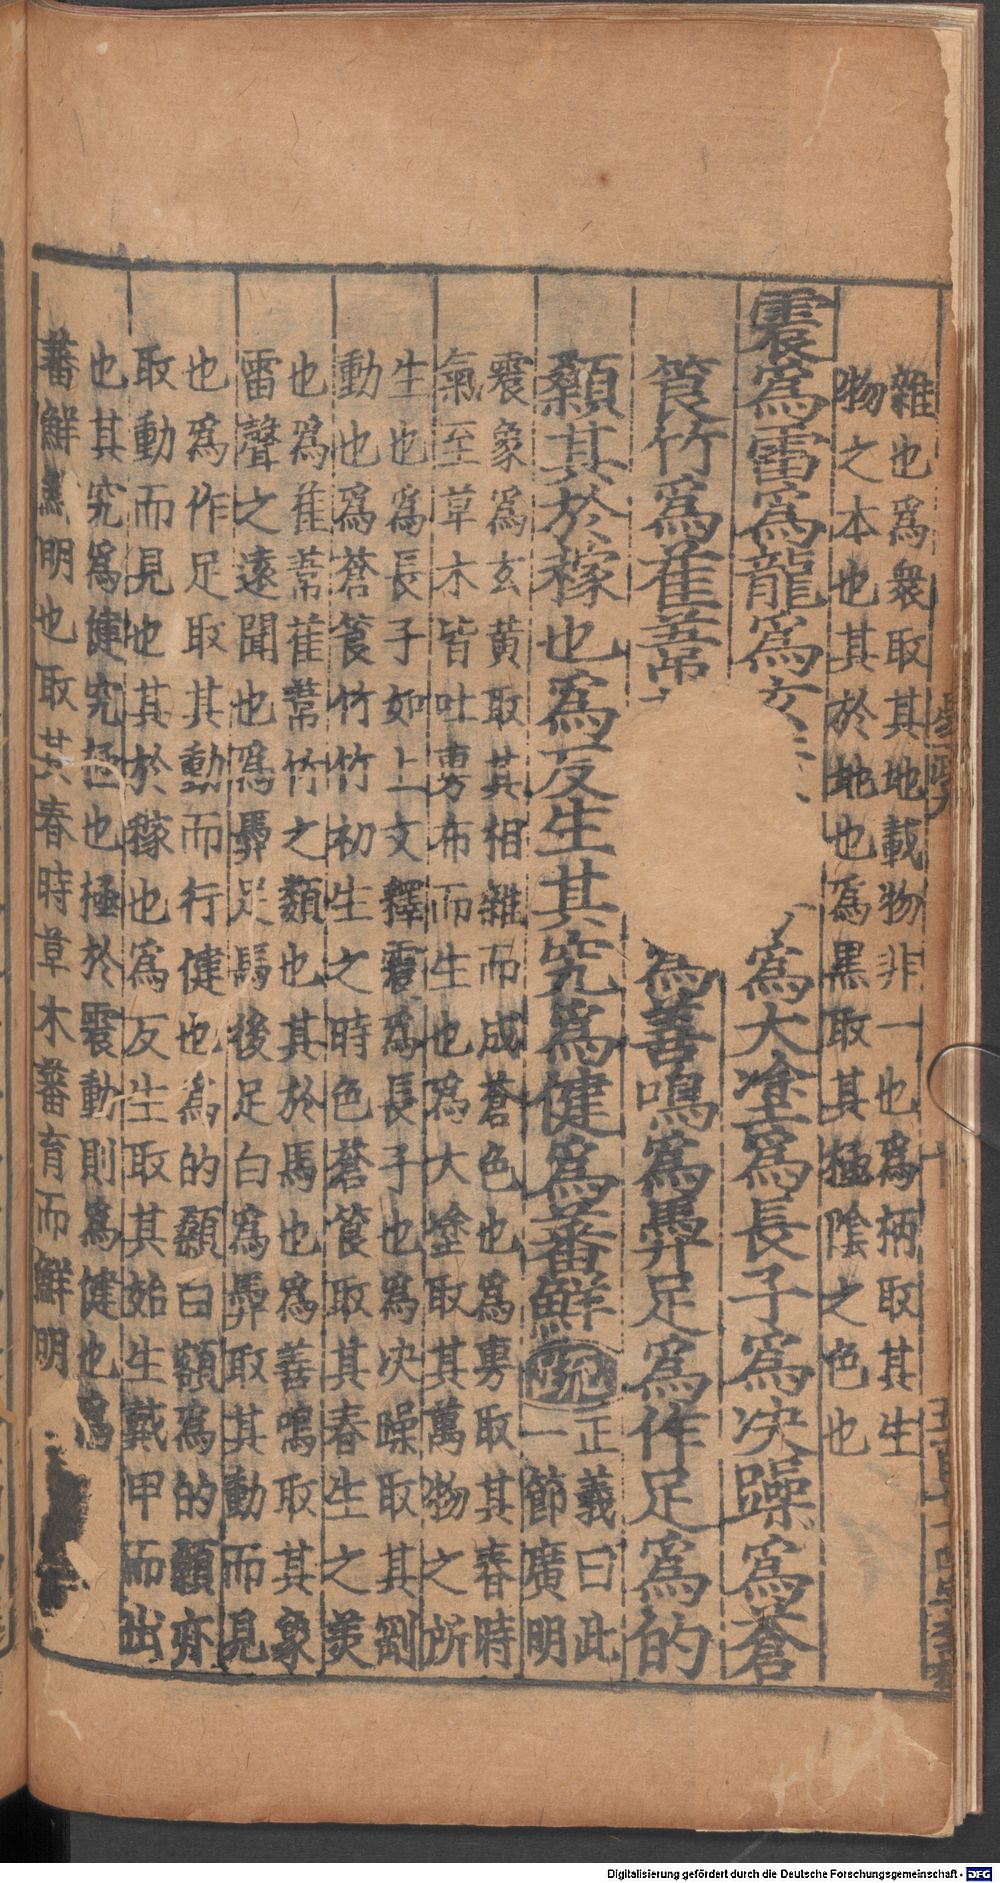 雜也爲衆取其地載物非一也爲柄取其生
物之本也其於地也爲黑取其極陰之色也
震爲雷爲龍爲玄
爲大塗爲長子爲决躁爲蒼
筤竹爲萑葦
爲善鳴爲馵足爲作足爲的
顙其於稼也爲反生其究爲健爲蕃鮮
疏
正義曰此
一節廣明
震象爲玄黃取其相雜而成蒼色也爲旉取其春時
氣至草木皆吐旉布而生也爲大塗取其萬物之所
生也爲長子如上文釋震爲長子也爲决躁取其剛
動也爲蒼筤竹竹初生之時色蒼筤取其春生之美
也爲萑葦萑葦竹之類也其於馬也爲善鳴取其象
雷聲之遠聞也爲馵足馬後足白爲馵取其動而見
也爲作足取其動而行健也爲的顙白額爲的顙亦
取動而見也其於稼也爲反生取其始生戴甲而出
也其究爲健究極也極於震動則爲健也爲
蕃鮮鮮明也取其春時草木蕃育而鮮明
Digitalisierung gefördert durch die Deutsche Forschungsgemeinschaft - DFG